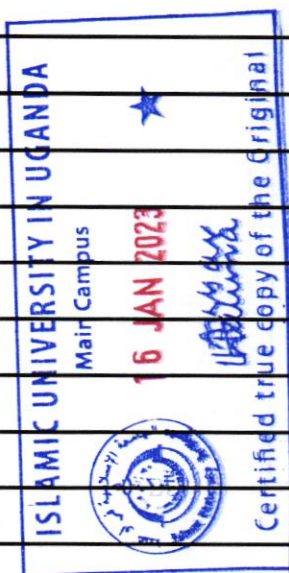 ISLAMIC UNIVERSITY IN UGANDA
Main Campus
16 JAN 2023
Certified true copy of the Original